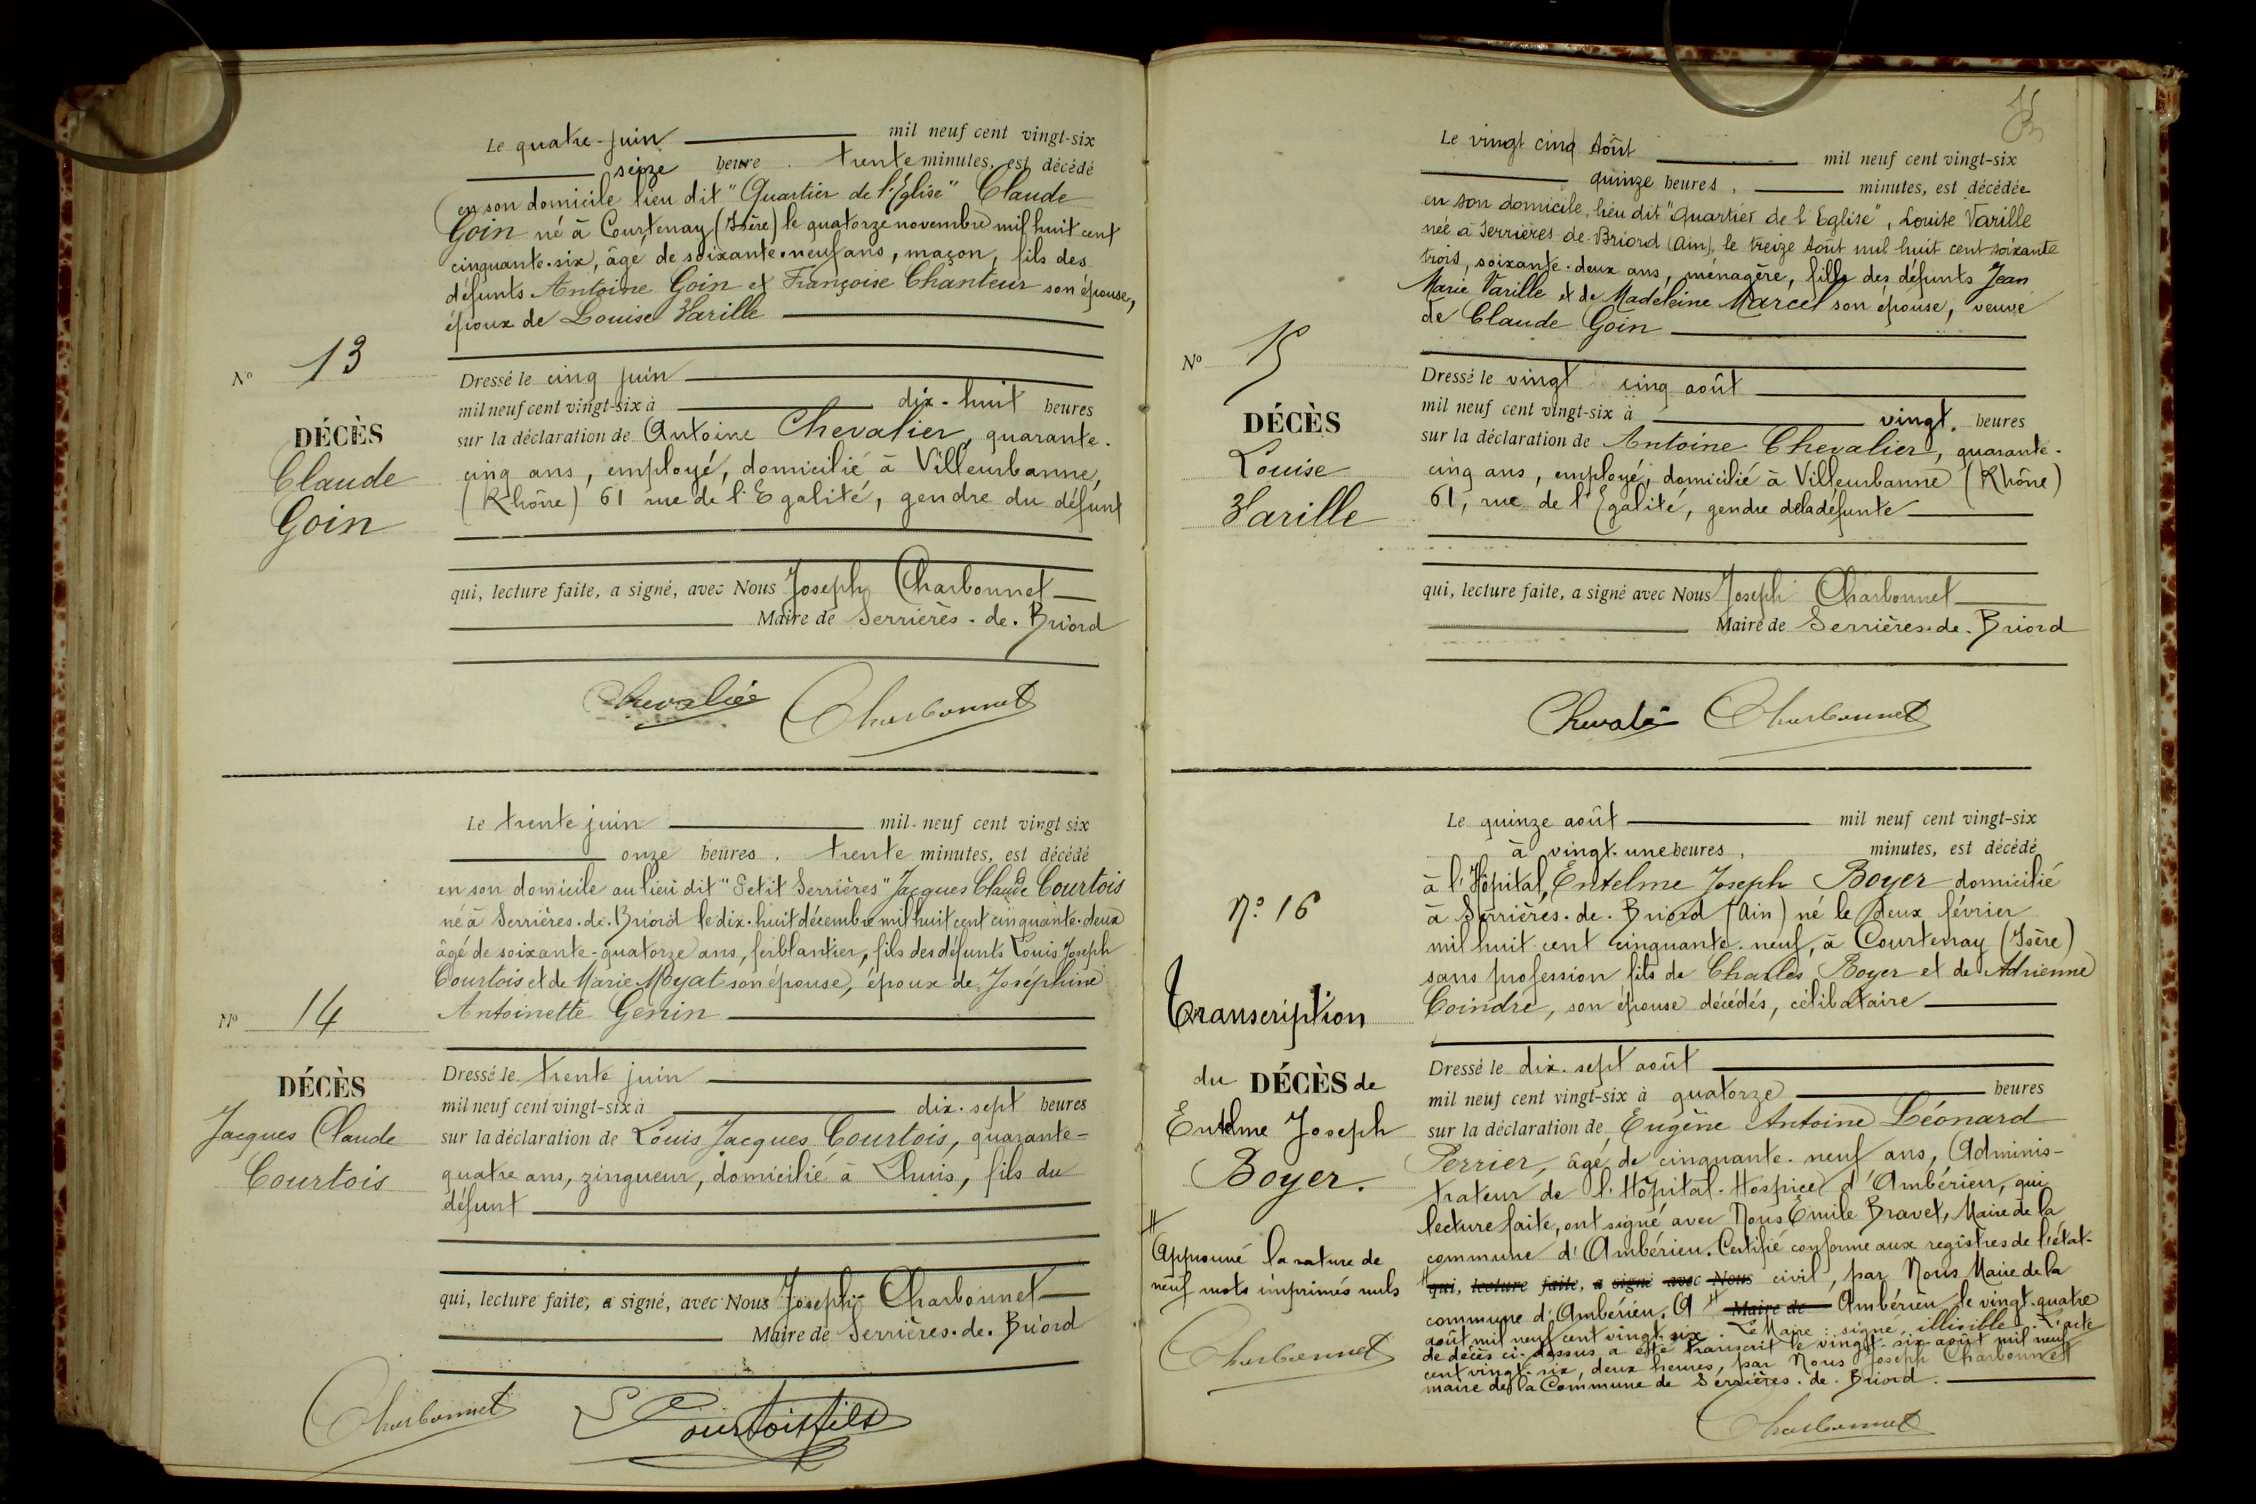 Le quatre juin mil neuf cent vingt-six
seize heure. trente minutes, est décédé
en son domicile lieu dit "Quartier de l'Église" Claude
Goin né à Courtenay (Isère) le quatorze novembre mil huit cent
cinquante-six, âgé de soixante-neuf ans, maçon, fils des
défunts Antoine Goin et Françoise Chanteur son épouse,
époux de Louise Varille
N° 13
DÉCÈS
Claude
Goin
Dressé le cinq juin
mil neuf cent vingt-six à dix-huit heures
sur la déclaration de Antoine Chevalier, quarante-
cinq ans, employé, domicilié à Villeurbanne,
(Rhône) 61 rue de l'Egalité, gendre du défunt
qui, lecture faite, a signé, avec Nous Joseph Charbonnet
Maire de Serrières-de-Briord
Chevalier Charbonnet
Le trente juin mil neuf cent vingt six
onze heures. trente minutes, est décédé
en son domicile au lieu dit "Petit Serrières" Jacques Claude Courtois
né à Serrières-de-Briord le dix-huit décembre mil huit cent cinquante-deux
âgé de soixante-quatorze ans, ferblantier, fils des défunts Louis Joseph
Courtois et de Marie Moyat son épouse, époux de Joséphine
Antoinette Genin
N° 14
DÉCÈS
Jacques Claude
Courtois
Dressé le trente juin
mil neuf cent vingt-six à dix-sept heures
sur la déclaration de Louis Jacques Courtois, quarante-
quatre ans, zingueur, domicilié à Lhuis, fils du
défunt
qui, lecture faite, a signé, avec Nous Joseph Charbonnet
Maire de Serrières-de-Briord
Charbonnet Courtois fils
Le vingt cinq Août mil neuf cent vingt-six
quinze heures, minutes, est décédée
en son domicile, lieu dit "Quartier de l'Eglise", Louise Varille
née à Serrières-de-Briord (Ain), le treize Août mil huit cent soixante
trois, soixante-deux ans, ménagère, fille des défunts Jean
Marie Varille et de Madeleine Marcel son épouse, veuve
de Claude Goin
N° 15
DÉCÈS
Louise
Varille
Dressé le vingt cinq août
mil neuf cent vingt-six à vingt. heures
sur la déclaration de Antoine Chevalier, quarante-
cinq ans, employé, domicilié à Villeurbanne (Rhône)
61, rue de l'Egalité, gendre de la défunte
qui, lecture faite, a signé avec Nous Joseph Charbonnet
Maire de Serrières-de-Briord
Chevalier Charbonnet
Le quinze août mil neuf cent vingt-six
à vingt-une heures, minutes, est décédé
à l'Hôpital, Entelme Joseph Boyer domicilié
à Serrières-de-Briord (Ain) né le deux février
mil huit cent cinquante-neuf, à Courtenay (Isère)
sans profession fils de Charles Boyer et de Adrienne
Coindre, son épouse décédés, célibataire
N° 16
Transcription
du DÉCÈS de
Entelme Joseph
Boyer.
Approuvé la rature de
neuf mots imprimés nuls
Charbonnet
Dressé le dix-sept août
mil neuf cent vingt-six à quatorze heures
sur la déclaration de Eugène Antoine Léonard
Perrier, âgé de cinquante-neuf ans, Adminis-
trateur de l'Hôpital-Hospice d'Ambérieu, qui
lecture faite, ont signé avec Nous Émile Bravet, Maire de la
commune d'Ambérieu. Certifié conforme aux registres de l'état-
qui, lecture faite, a signé avec Nous civil, par Nous Maire de la
commune d'Ambérieu. A Maire de Ambérieu le vingt-quatre
août mil neuf cent vingt-six. Le Maire: signé, illisible. L'acte
de décès ci-dessus a été transcrit le vingt-six août mil neuf
cent vingt-six, deux heures, par Nous Joseph Charbonnet
maire de la Commune de Serrières-de-Briord.
Charbonnet